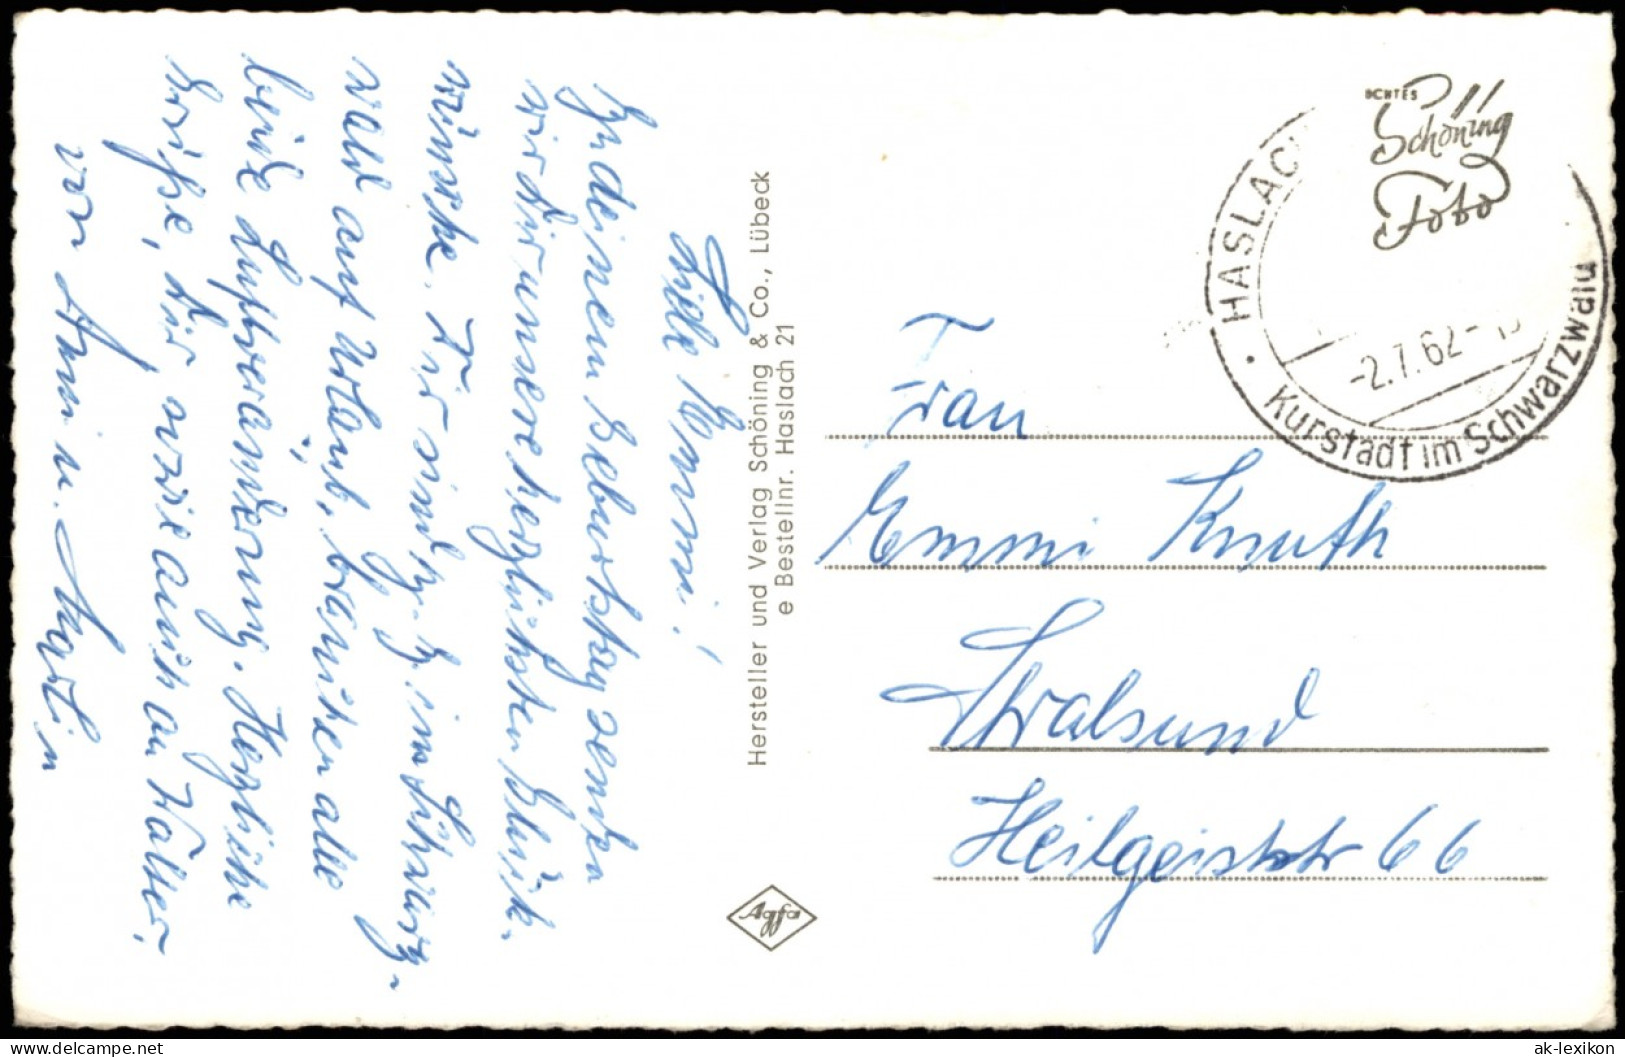 Liebe Emmi!
Zu deinem Geburtstag senden
wir dir unsere herzlichsten Glück-
wünsche. Wir sind z. Z. im Schwarz-
wald auf Urlaub, brauchen alle
beide Luftveränderung. Herzliche
Grüße, dir, sowie auch an Walter.
von Anni u. Martin
Hersteller und Verlag Schöning & Co., Lübeck
e Bestellnr. Haslach 21
Agfa
ECHTES
Schöning
Foto
HASLACH
-2.7.62-
Kurstadt im Schwarzwald
Frau
Emmi Knuth
Stralsund
Heilgeiststr 66
ak-lexikon